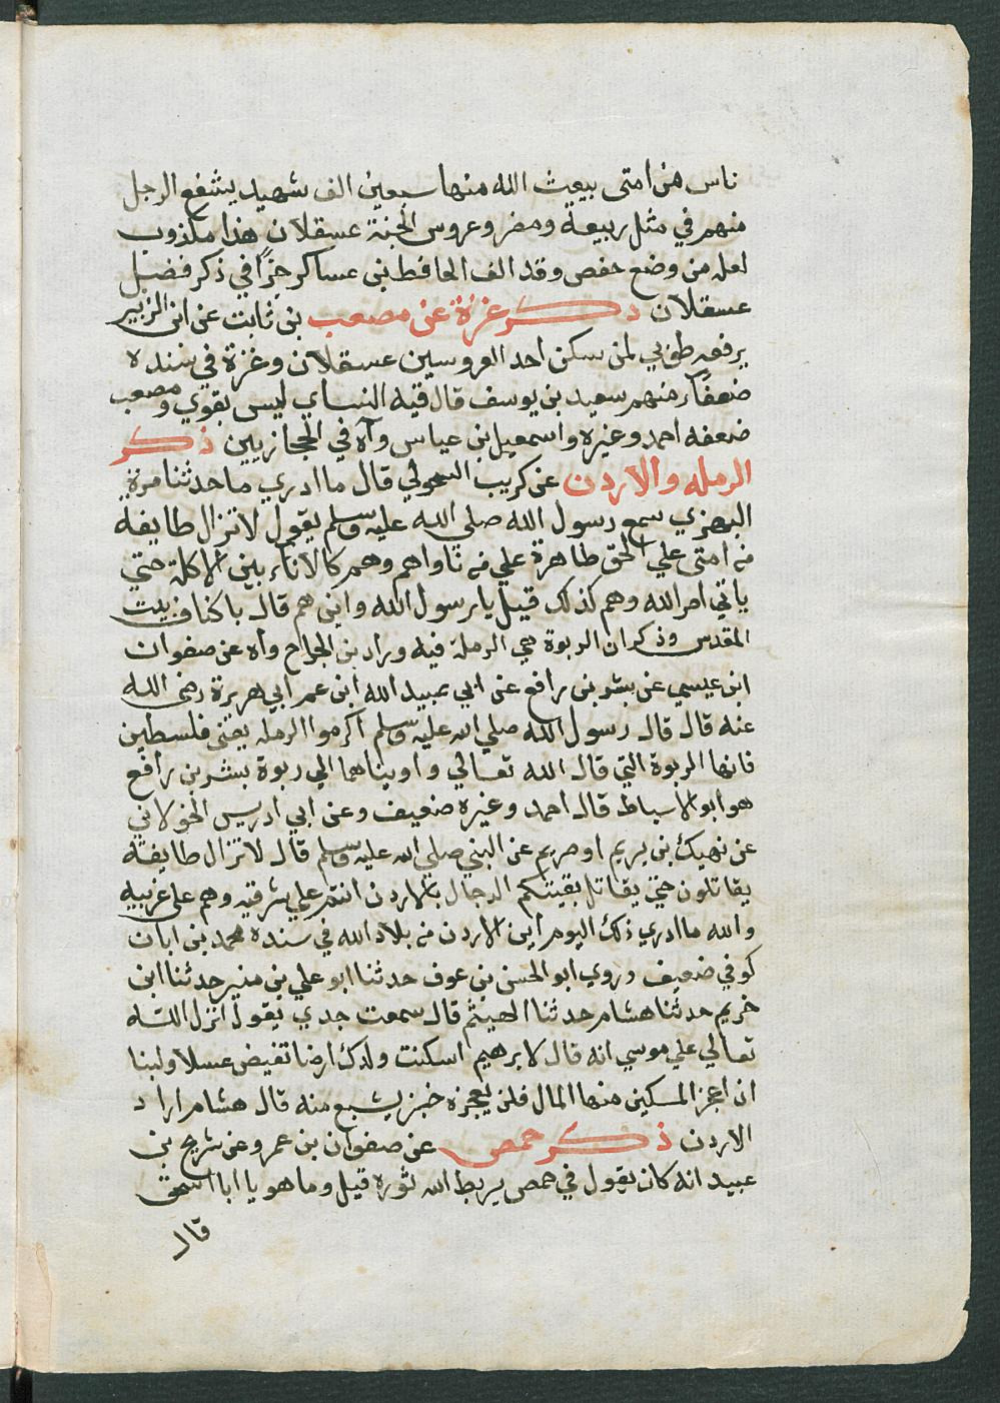 ناس من امتى يبعث الله منها سبعين الف شهيد يشفع الرجل
منهم في مثل ربيعة ومضر وعروس الجنة عسقلان هذا مكذوب
لعله من وضع حفص وقد الف الحافظ بن عساكر جزًا في ذكر فضل
عسقلان ذكر غزة عن مصعب بن ثابت عن ابن الزبير
يرفعه طوبي لمن سكن احد العروسين عسقلان وغزة في سنده
ضعفاء منهم سعيد بن يوسف قال فيه النساي ليس بقوي ومصعب
ضعفه احمد وغيره واسمعيل بن عياس واه في الحجازيين ذكر
الرمله والاردن عن كريب السحولي قال ما ادري ما حدثنا مرة
البهزي سمع رسول الله صلى الله عليه وسلم يقول لا تزال طايفة
من امتى علي الحق ظاهرة علي من ناواهم وهم كالاناء بين الاكلة حتي
ياتي امر الله وهم كذلك قيل يا رسول الله واين هم قال باكناف بيت
المقدس وذكر ان الربوة هي الرملة فيه وراد بن الجراح واه عن صفوان
ابن عيسي عن بشر بن رافع عن ابي عبيد الله ابن عم ابي هريرة رضى الله
عنه قال قال رسول الله صلي الله عليه وسلم اكرموا الرمله يعنى فلسطين
فانها الربوة التي قال الله تعالي واويناهما الي ربوة بشر بن رافع
هو ابو الاسباط قال احمد وغيره ضعيف وعن ابي ادريس الخولاني
عن نهيك بن يريم او صريم عن النبي صلي الله عليه وسلم قال لا تزال طايفة
يقاتلون حتي يقاتل بقيتكم الدجال بالاردن انتم علي شرقيه وهم على غربيه
والله ما ادري ذلك اليوم اين الاردن من بلاد الله في سنده محمد بن ابان
كوفي ضعيف وروي ابو الحسن بن عوف حدثنا ابو علي بن منير حدثنا ابن
خريم حدثنا هشام حدثنا الهيثم قال سمعت جدي يقول انزل الله
تعالي علي موسي انه قال لابرهيم اسكنت ولدك ارضا تفيض عسلا ولبنا
ان اعجز المسكين منها المال فلن يعجزه خبز يشبع منه قال هشام اراد
الاردن ذكر حمص عن صفوان بن عمرو عن شريح بن
عبيد انه كان يقول في حمص يربط الله ثوره قيل وما هو يا ابا اسحق
قال